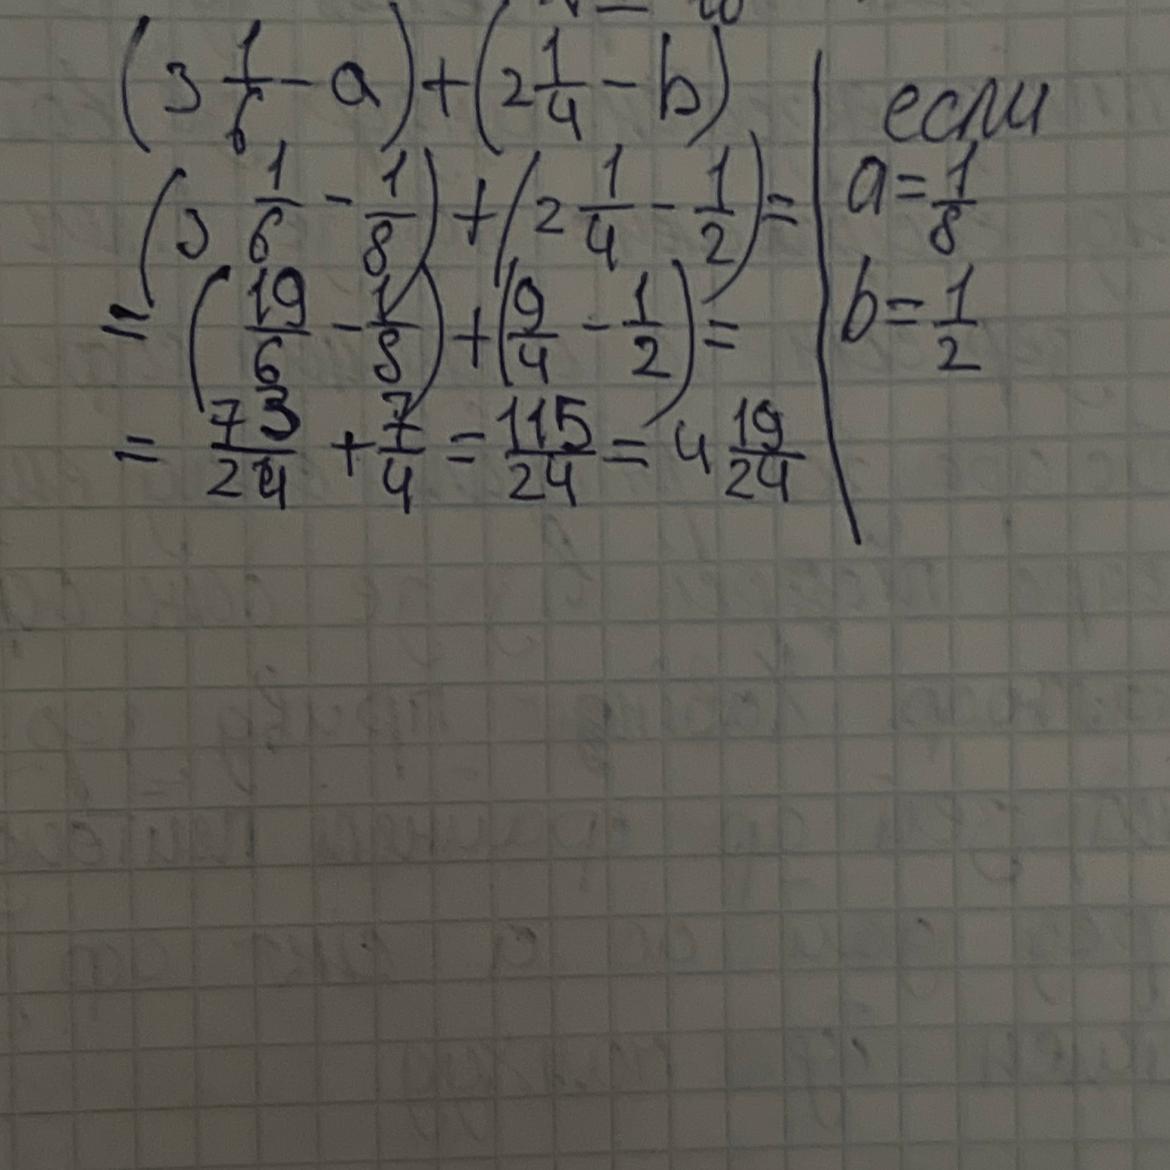 (3 1/6 - a) + (2 1/4 - b)
(3 1/6 - 1/8) + (2 1/4 - 1/2) =
= (19/6 - 1/8) + (9/4 - 1/2) =
= 73/24 + 7/4 = 115/24 = 4 19/24
если
a = 1/8
b = 1/2